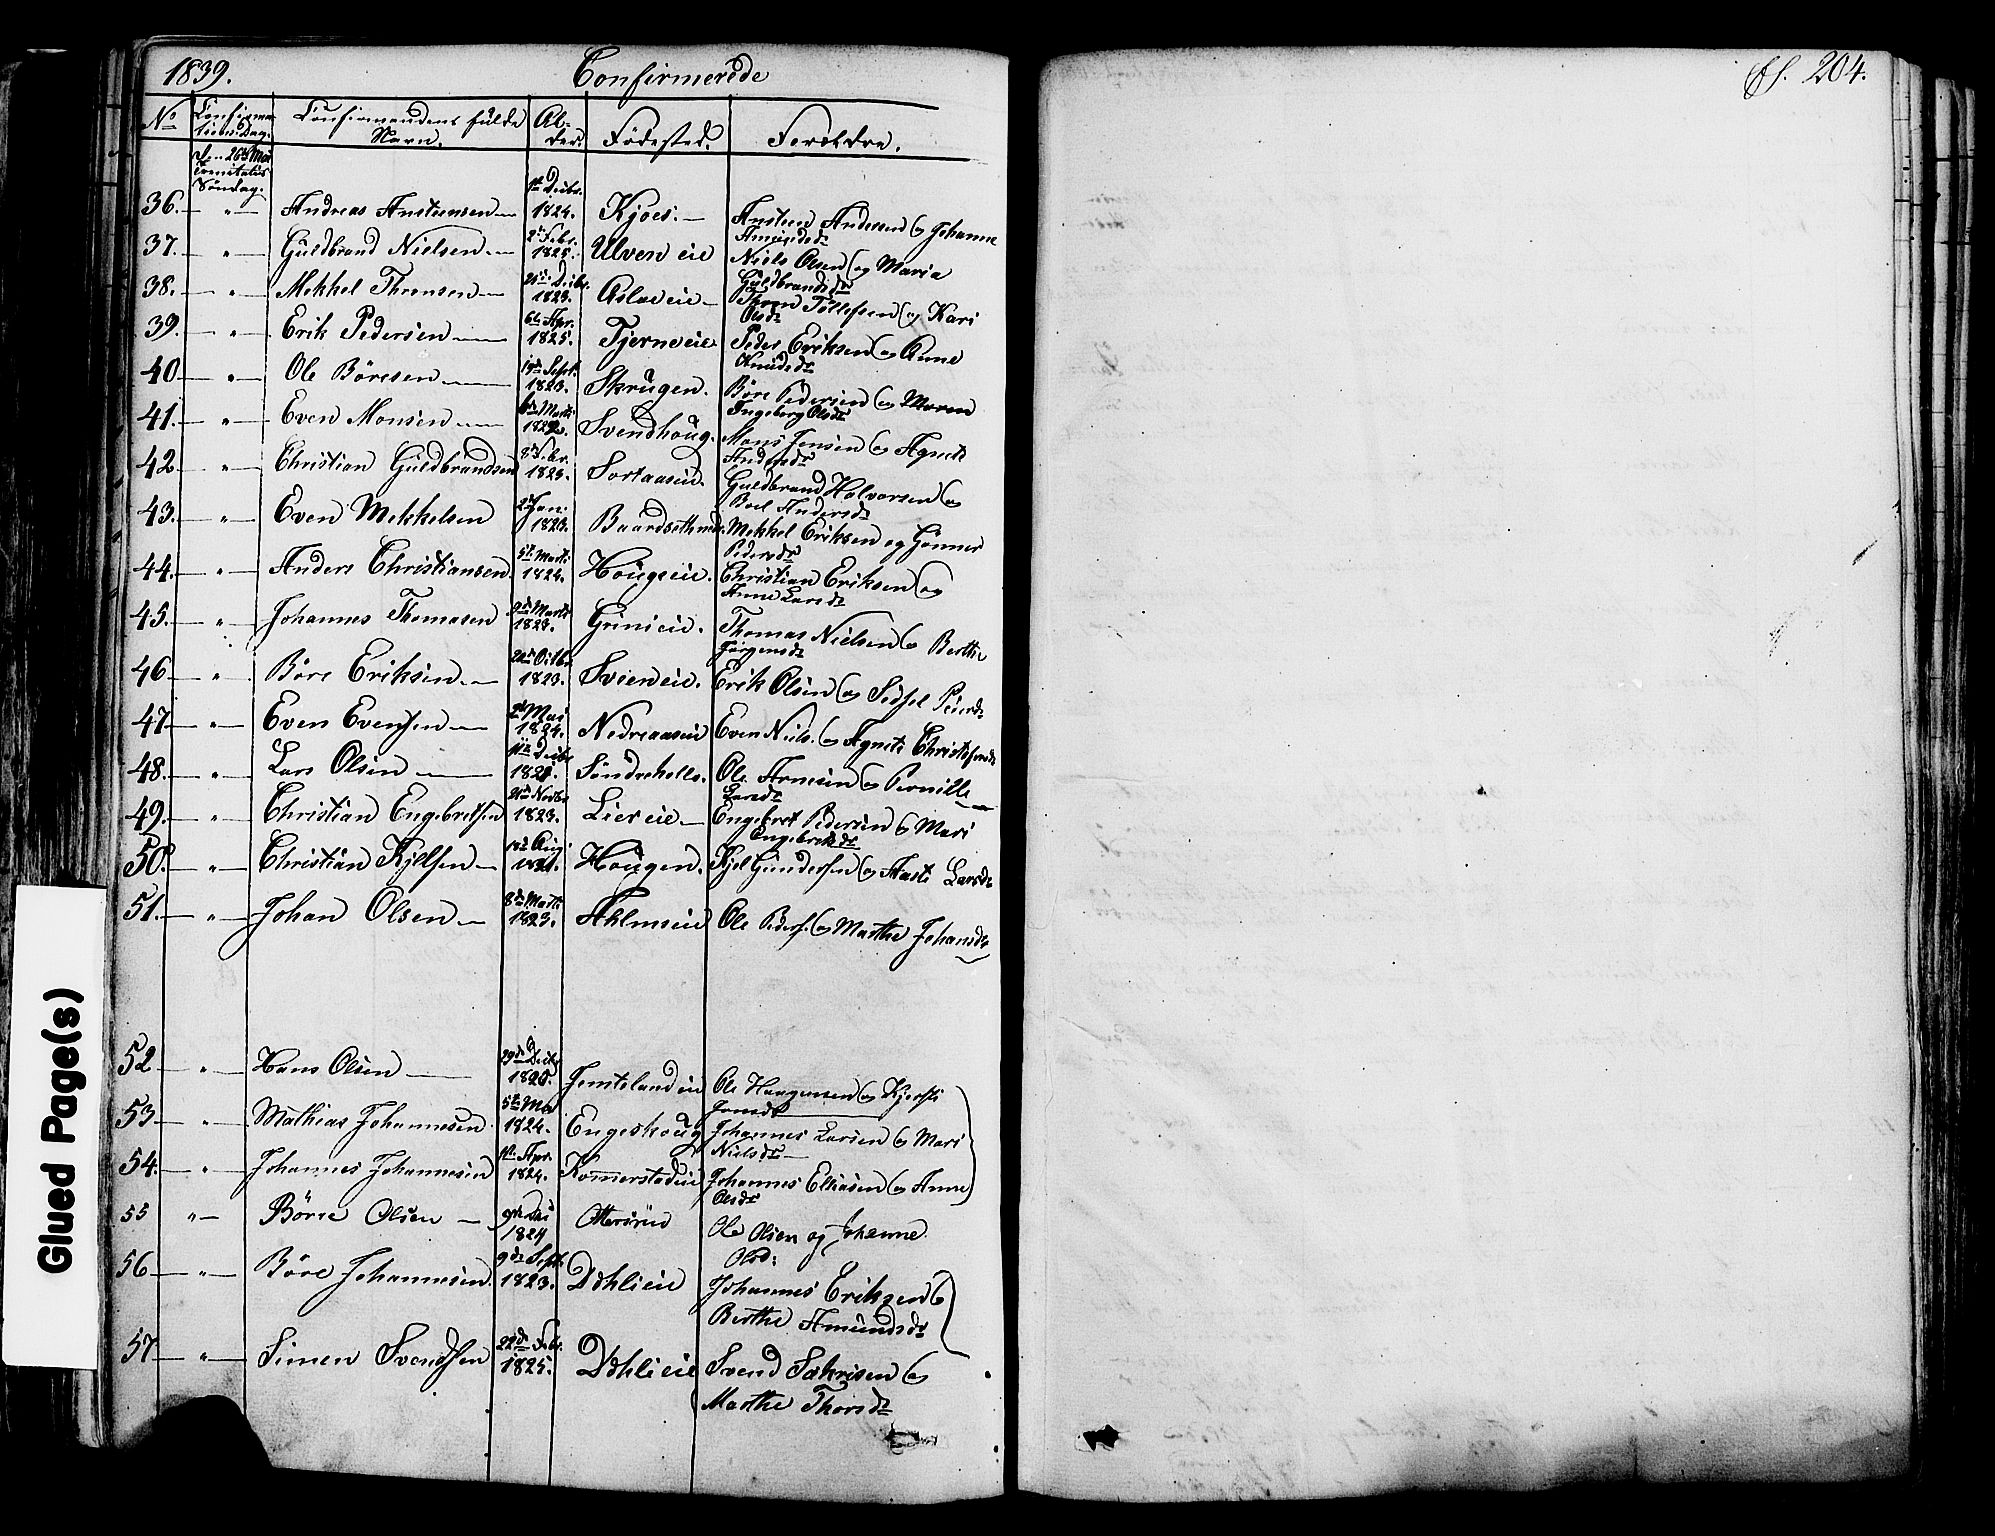 1839. Confirmerede
fl. 204.
No Confirmations Dag. Confirmandens fulde Navn. Alder. Fødested. Foreldre.
Den 26de Mai Trenitatis Søndag.
36. " Andreas Anstensen 1ste Decbr. 1824. Kjoes. Ansteen Andersen og Johanne Amundsdr
37. " Guldbrand Nielsen Febr. 1825. Ulven eie Niels Olsen og Maria Guldbrandsdr
38. " Mekkel Thronsen Decbr. 1823. Aslaveie Thron Tollefsen og Kari Olsdr
39. " Erik Pedersen 6te Apr. 1825. Tjerneeie Peder Eriksen og Anne Knudsdr
40 " Ole Børesen 19de Sept. 1823. Skrugen. Børe Pedersen og Maren Ingeborg Olsdr
41. " Even Monsen Marts Svendhoug. Mons Jensen og Agnete Andersdr
42 " Christian Guldbrandsen Febr. 1823. Sortaaseie. Guldbrand Halvorsen og Boel Andersdr
43. " Even Mekkelsen Jan: 1823. Baardseth Mekkel Eriksen og Gunner Pedersdr
44. " Anders Christiansen 5te Marts 1824. Hougseie. Christian Eriksen og Anne Larsdr
45. " Johannes Thomasen 9de Marts 1823. Grinieie. Thomas Nielsen og Berthe Jørgensdr
46 " Børe Eriksen. Octbr 1823. Svieneie. Erik Olsen og Sidsel Pedersdr
47 " Even Evensen Mai 1824. Nedreaaseie Even Niels. og Agnete Christophersdr
48. " Lars Olsen Decbr Søndrehells. Ole Arnesen og Pernille Larsdr
49. " Christian Engebretsen Novbr 1823. Liereie Engebret Pedersen og Mari Engebretsdr
50. " Christian Kjelsen Aug Hougen. Kjel Gundersen og Aaste Larsdr
51. " Johan Olsen 8de Marts 1823. Ahlmseie Ole Peders. og Marthe Johansdr
52 " Hans Olsen 29de Decbr Jemtelandeie Ole Haagensen og Kjersti Jonsdr
53 " Mathias Johannesen. 5te Mai 1824. Engeshoug Johannes Larsen og Mari Nielsdr
54. " Johannes Johannesen Apr. 1824. Komerstadeie Johannes Elliasen og Anne Olsdr
55 " Børre Olsen 1824 Ole Olsen og Johanne Olsd:
56 " Børe Johannesen. 9de Sept. 1823. Døhlieie Johannes Eriksen og Berthe Amundsdr
57 " Simen Svendsen 22de Febr. 1825. Døhlieie Svend Sakrisen og Marthe Thorsdr
Glued Page(s)